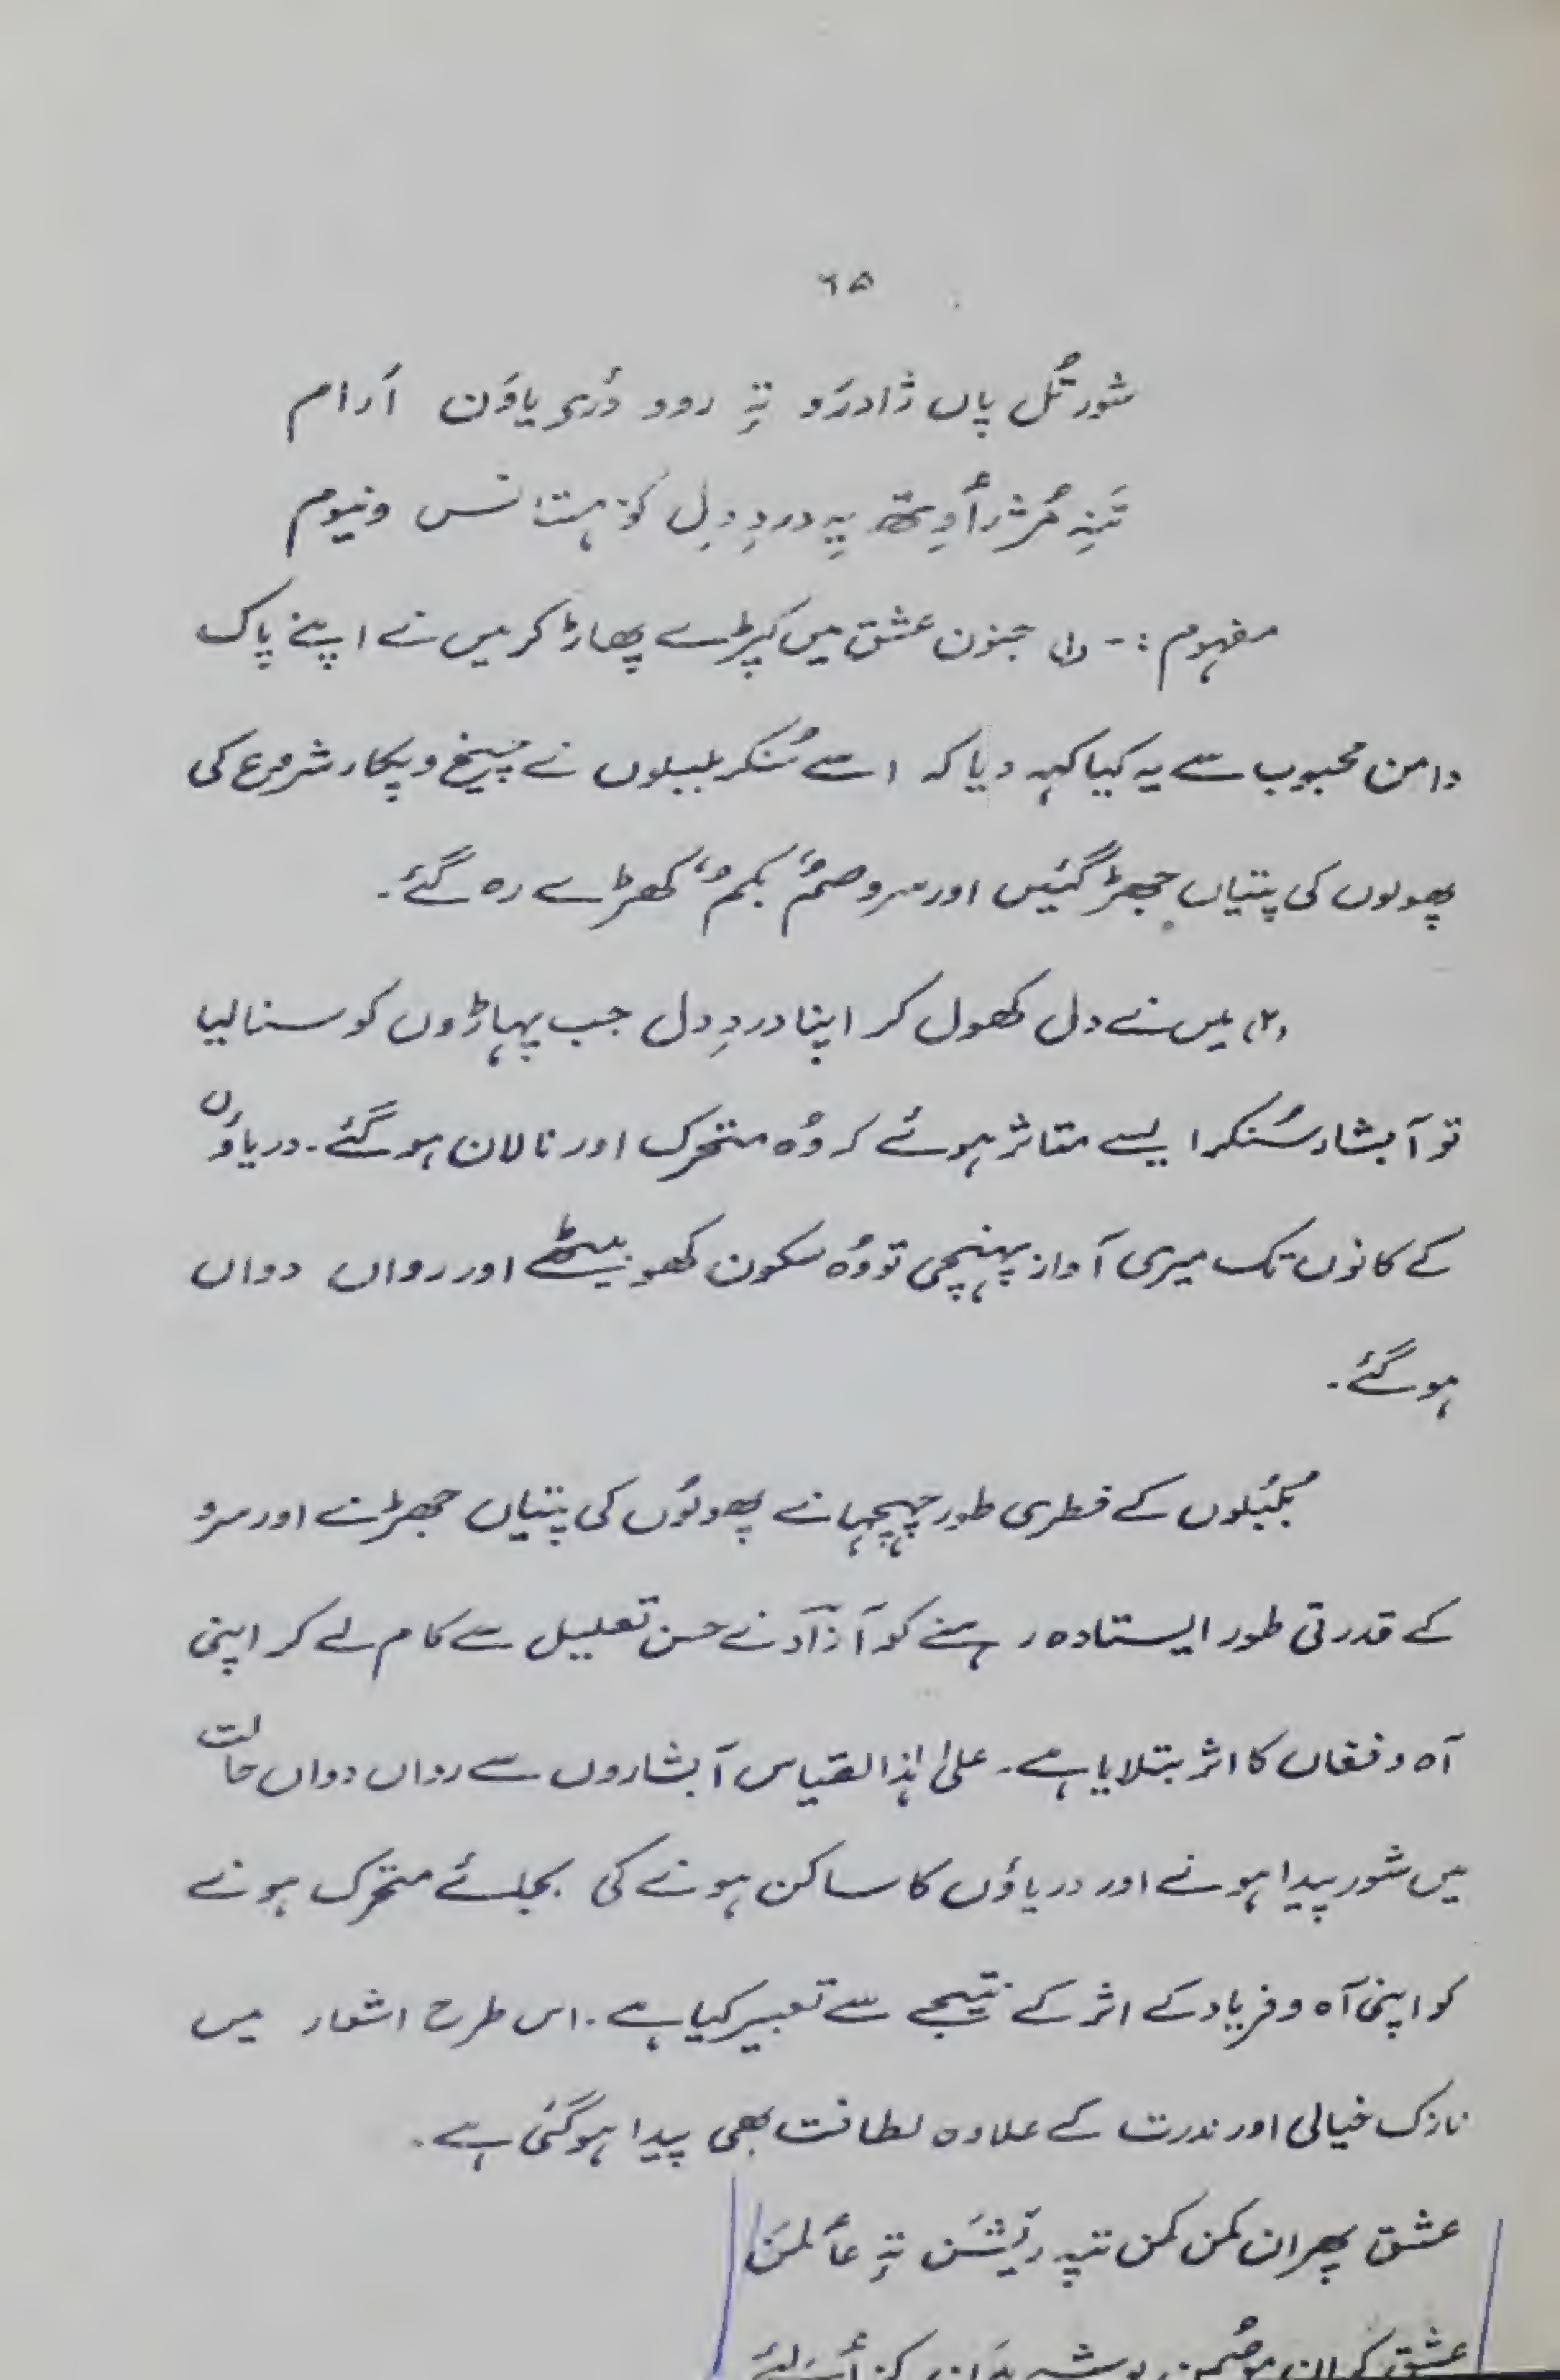 ۶۵
شور تُل پاں ژادرَو تہٕ روو دٔری یاوَن أرام
تَنہِ مُژرأوِتھ یہِ دردِ دِل کوٚہستانَس ونیوم
مفہوم :- (۱) جنون عشق میں کپڑے پھاڑ کر میں نے اپنے پاک
دامن محبوب سے یہ کیا کہہ دیا کہ اسے سُنکر بلبلوں نے چیخ و پکار شروع کی
پھولوں کی پتیاں جھڑ گئیں اور سرو صمٌ بکمٌ کھڑے رہ گئے۔
(۲) میں نے دل کھول کر اپنا دردِ دل جب پہاڑوں کو سنا لیا
تو آبشار سُنکر ایسے متاثر ہوئے کہ وُہ متحرک اور نالان ہو گئے۔ دریاؤں
کے کانوں تک میری آواز پہنچی تو وُہ سکون کھو بیٹھے اور رواں دواں
ہو گئے۔
بُلبُلوں کے فطری طور چہچہانے پھولوں کی پتیاں جھڑنے اور سرو
کے قدرتی طور ایستادہ رہنے کو آزآد نے حسن تعلیل سے کام لے کر اپنی
آہ و فغاں کا اثر بتلایا ہے۔ علیٰ ہٰذا القیاس آبشاروں سے رواں دواں حالت
میں شور پیدا ہونے اور دریاؤں کا ساکن ہونے کی بجائے متحرک ہونے
کو اپنی آہ و فریاد کے اثر کے نتیجے سے تعبیر کیا ہے۔ اس طرح اشعار میں
نازک خیالی اور ندرت کے علاوہ لطافت بھی پیدا ہو گئی ہے۔
عشق پھران کمن کمن تپہ ریٚشَن تہٕ عألمَن
عشق